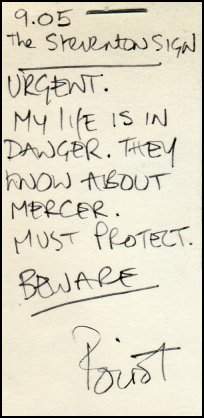 9.05
The STEVENTON SIGN
URGENT.
MY LIFE IS IN
DANGER. THEY
KNOW ABOUT
MERCER.
MUST PROTECT.
BEWARE